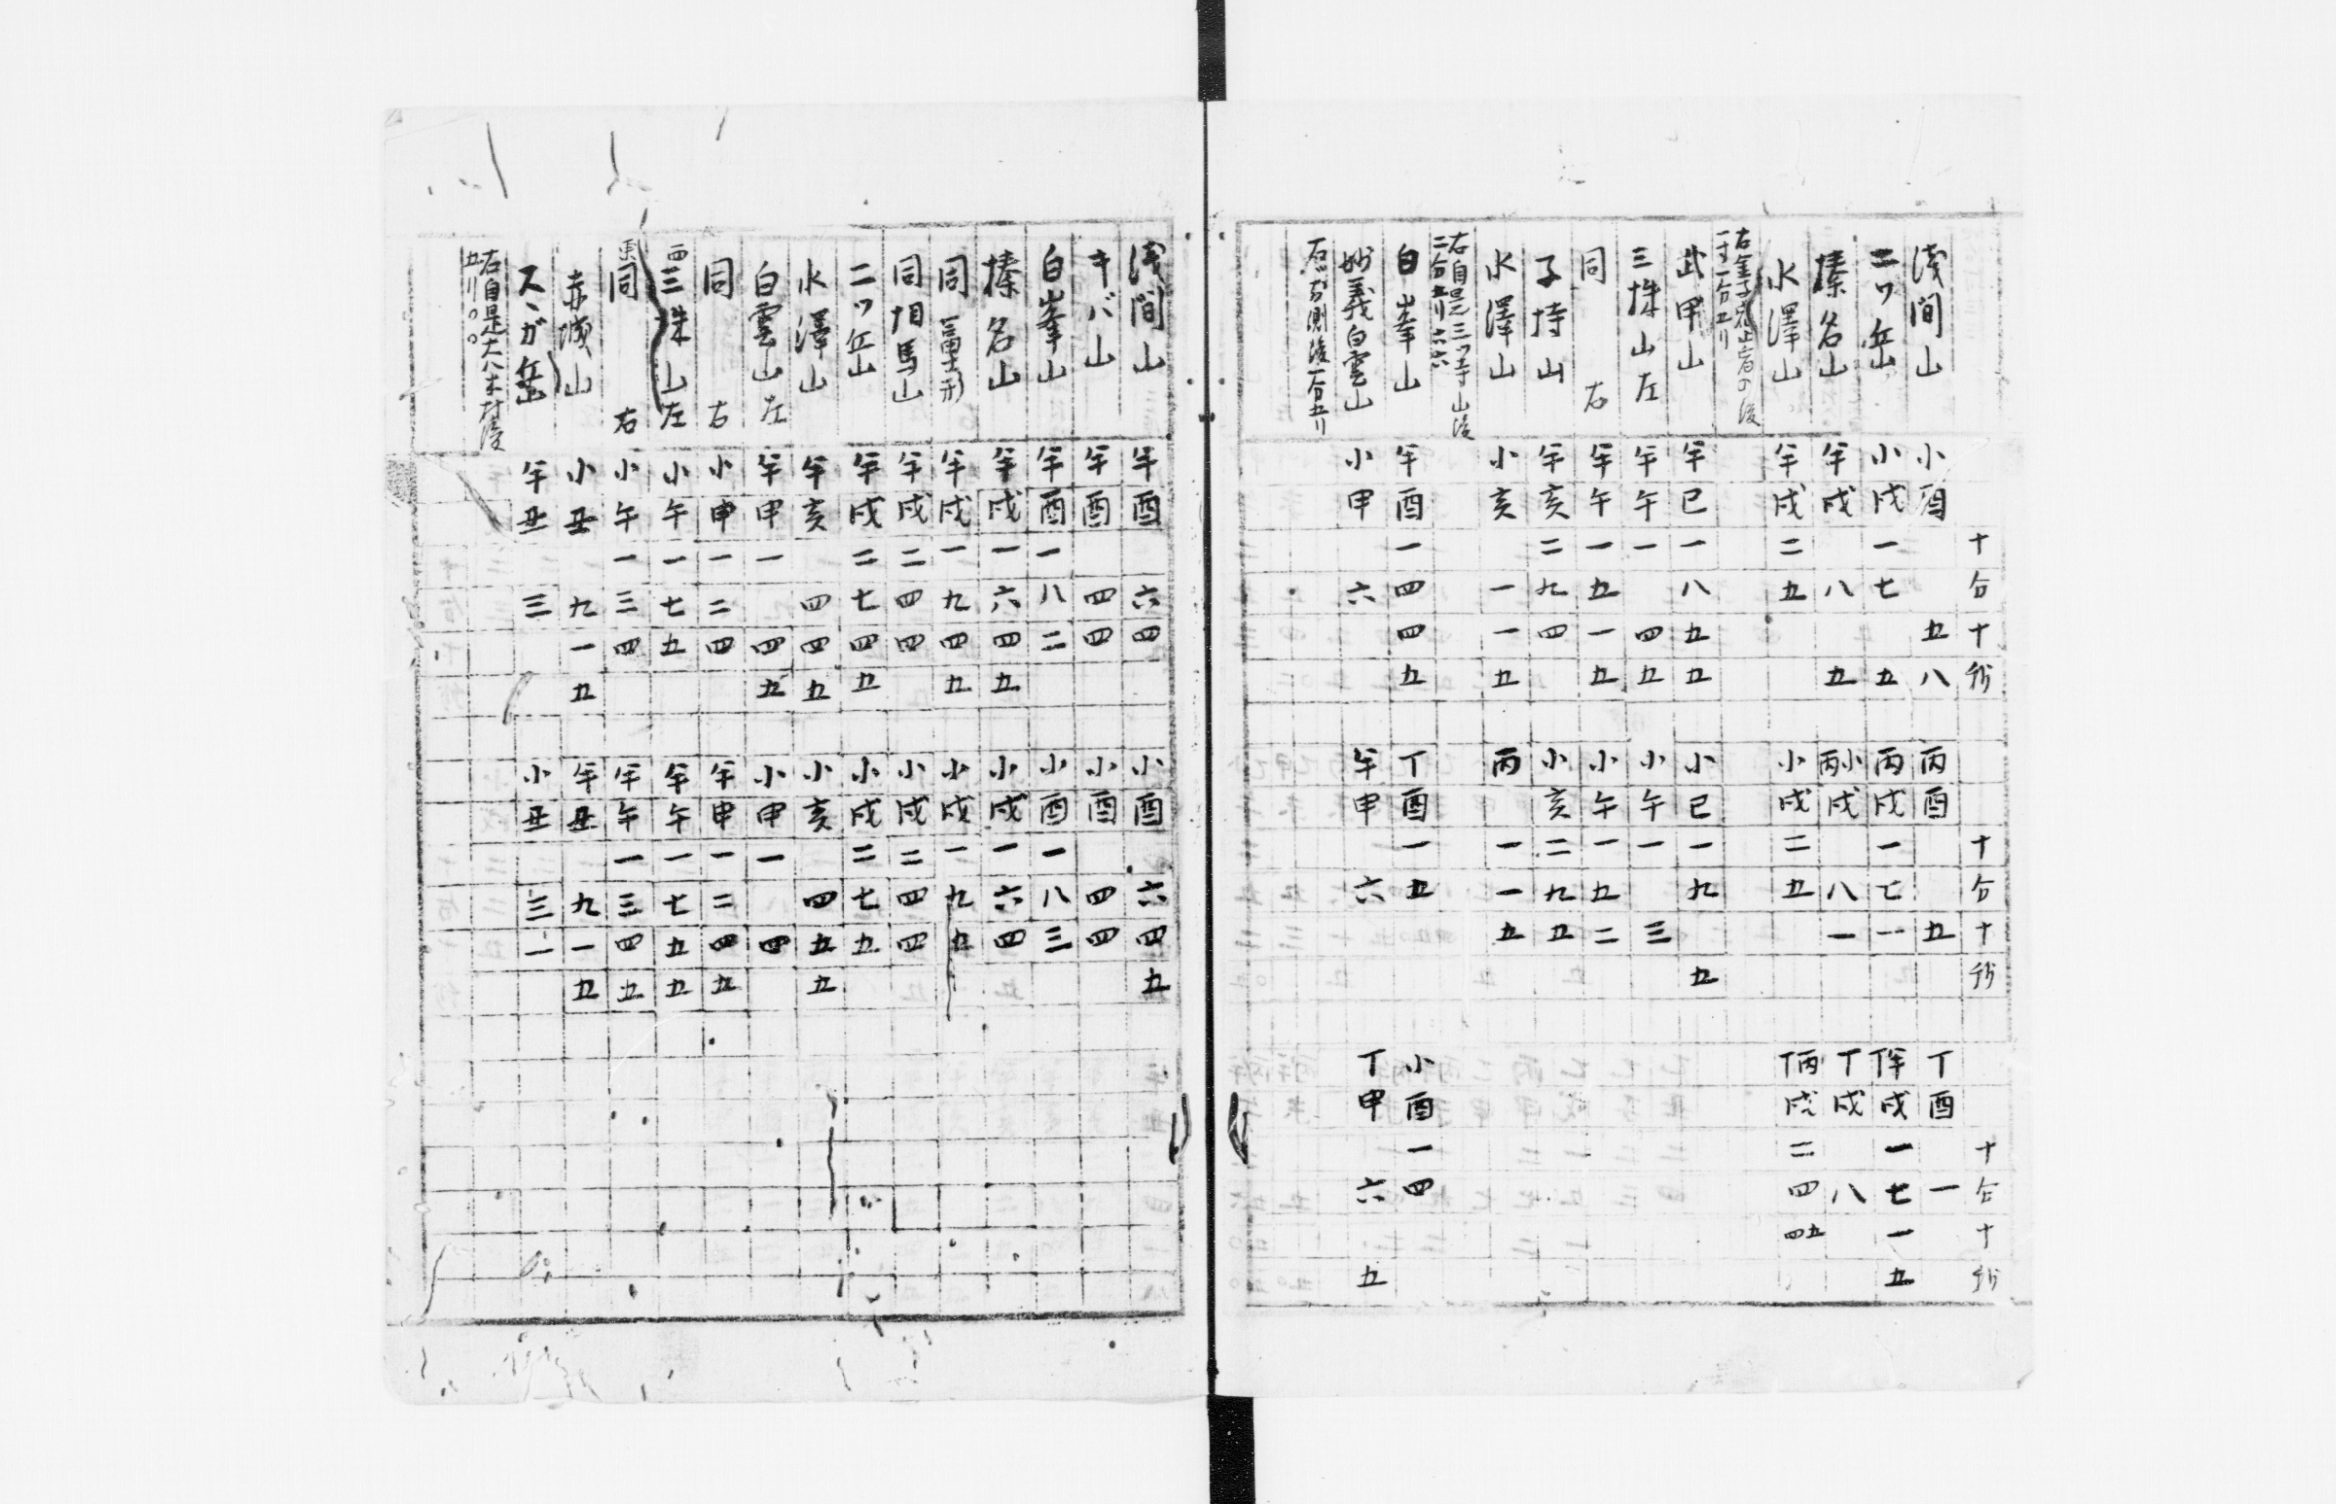 十分十抄 十分十抄 十分十抄
浅間山 小酉 五八 丙酉 五 丁酉 一
二ツ岳 小戌一七 五 丙戌一七一 丁半戌一七一五
榛名山 半戌 八 五 丙小戌 八一 丁戌 八
水澤山 半戌二五 小戌二五 丁丙戌二四四五
武甲山 半巳一八五五 小巳一九 五
三株山左 半午一 四五 小午一 三
同 右 半午一五一五 小午一五二
子持山 半亥二九四 小亥二九五
水澤山 小亥 一一五 丙 一一五
右自是三ツ寺山後
二分五リ六六
白峯山 半酉一四四五 丁酉一五 小酉一四
妙義白雲山 小甲 六 半申 六 丁申 六 五
浅間山 半酉 六四 小酉 六四五
キバ山 半酉 四四 小酉 四四
白峯山 半酉一八二 小酉一八三
榛名山 半戌一六四五 小戌一六四
同 富士形 半戌一九四五 小戌一九五
同相馬山 半戌二四四 小戌二四四
二ツ岳 半戌二七四五 小戌二七五
水澤山 半亥 四四五 小亥 四五五
白雲山左 半甲一 四五 小甲一 四
同 右 小申一二四 半申一二四五
西三株山左 小午一七五 半午一七五五
東同 右 小午一三四 半午一三四五
赤城山 小丑 九一五 半丑 九一五
スヽガ岳 半丑 三 小丑 三一
右自是大八木村後
五リ〇〇